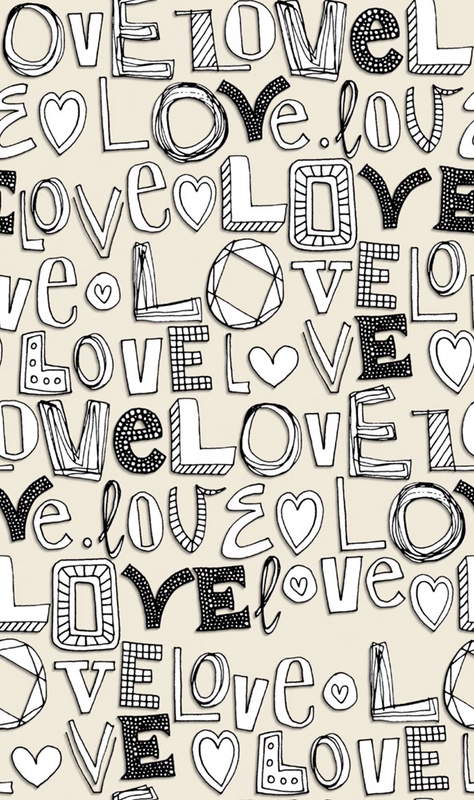 OVE LOVeL
E LOVe.lOV
LOVe LOVE
ve LOVELO
LOVE l VE
OVeLOVE L
Ve.lOVE LO
LOVEl ove
VELOve L
VE LOVE